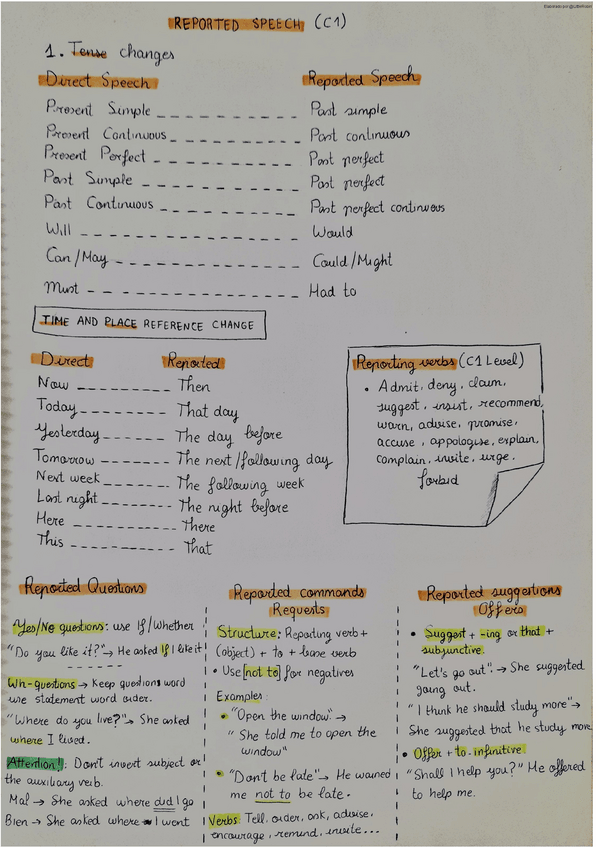 REPORTED SPEECH (C1)
1. Tense changes
Direct Speech Reported Speech
Present Simple _ _ _ _ _ _ _ _ _ _ Past simple
Present Continuous _ _ _ _ _ _ _ _ _ Past continuous
Present Perfect _ _ _ _ _ _ _ _ _ _ Past perfect
Past Simple _ _ _ _ _ _ _ _ _ _ Past perfect
Past Continuous _ _ _ _ _ _ _ _ _ Past perfect continuous
Will _ _ _ _ _ _ _ _ _ _ _ _ _ Would
Can/May _ _ _ _ _ _ _ _ _ _ _ Could/Might
Must _ _ _ _ _ _ _ _ _ _ _ _ _ Had to
TIME AND PLACE REFERENCE CHANGE
Direct Reported
Now _ _ _ _ _ _ _ _ Then
Today _ _ _ _ _ _ _ _ That day
Yesterday _ _ _ _ _ _ The day before
Tomorrow _ _ _ _ _ _ The next/following day
Next week _ _ _ _ _ _ The following week
Last night _ _ _ _ _ _ The night before
Here _ _ _ _ _ _ _ _ There
This _ _ _ _ _ _ _ _ That
Reporting verbs (C1 Level)
• Admit, deny, claim,
suggest, insist, recommend,
warn, advise, promise,
accuse, appologise, explain,
complain, invite, urge.
forbid
Reported Questions
Yes/No questions: use If/Whether
"Do you like it?" → He asked If I like it
Wh-questions → Keep questions word
use statement word order.
"Where do you live?" → She asked
where I lived.
Attention!: Don't invert subject or
the auxiliary verb.
Mal → She asked where did I go
Bien → She asked where I went
Reported commands
Requests
Structure: Reporting verb +
(object) + to + base verb
• Use [not to] for negatives
Examples:
• "Open the window" →
"She told me to open the
window"
• "Don't be late" → He warned
me not to be late.
Verbs: Tell, order, ask, advise,
encourage, remind, invite...
Reported suggestions
Offers
• Suggest + -ing or that +
subjunctive.
"Let's go out" → She suggested
going out.
"I think he should study more" →
She suggested that he study more
• Offer + to infinitive
"Shall I help you?" He offered
to help me.